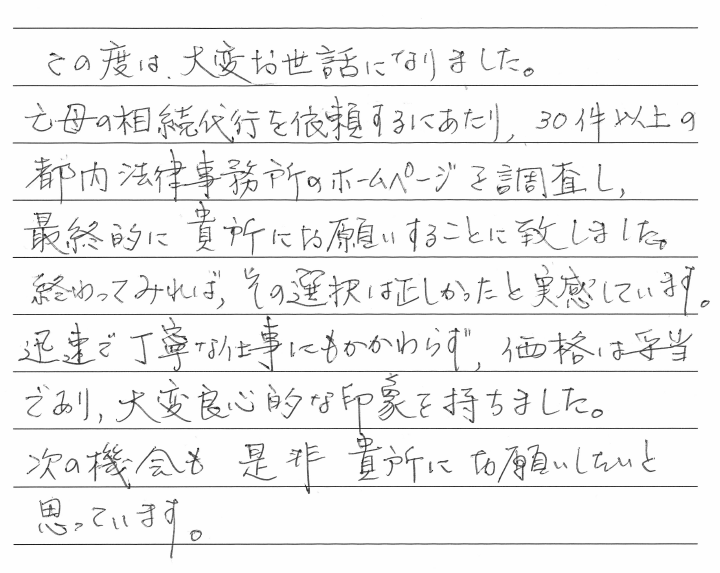 この度は、大変お世話になりました。
亡母の相続代行を依頼するにあたり、30件以上の
都内法律事務所のホームページを調査し、
最終的に貴所にお願いすることに致しました。
終わってみれば、その選択は正しかったと実感しています。
迅速で丁寧な仕事にもかかわらず、価格は妥当
であり、大変良心的な印象を持ちました。
次の機会も是非貴所にお願いしたいと
思っています。